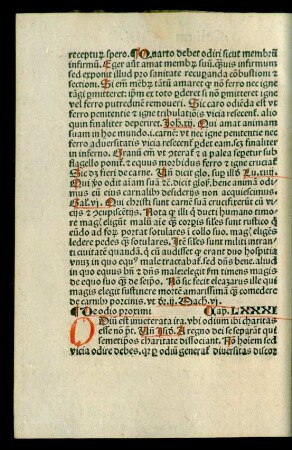 recepturꝰ spero. ¶ Quarto debet odiri sicut membrū
infirmū. Eger aūt amat membꝝ suū. q̄uis infirmum
sed exponit illud pro sanitate recuꝑanda cōbustioni et
sectioni. Si em̄ mēbꝝ tātū amaret ꝙ nō ferro nec igne
tāgi ꝑmitteret: ip̄m et totū ꝑderet si nō ꝑmitteret igne
vel ferro putredinē remoueri. Sic caro odiēda est vt
ferro penitentie et igne tribulatiōis vicia rescenf. alio
quin finaliter deperiret. Joh. xij. Qui amat animam
suam in hoc mundo. i. carnē: vt nec igne penitentie nec
ferro aduersitatis vicia rescenf ꝑdet eam. seꝫ finaliter
in infernū. Granū em̄ vt ꝯteraf et a palea sepetur sub
flagello ponif. et equus morbidus ferro et igne curaf
Sic dꝫ fieri de carne. Vn̄ dicit glo. suꝑ illo Lu. xiiij.
Qui nō odit aiam suā ꝛc. dicit glof. bene animā odi
mus cū eius carnalib desiderijs non acquiescimus.
Gal. v. Qui christi sunt carnē suā crucifixerūt cū vi
cijs et ꝯcupiscētijs. Nota ꝙ illi q̄ ducti humano timo
re mag. eligūt malū aīe ꝗ̄ corpīs siles sunt rustico q̄
eūdo ad foꝝ portat sotulares i collo suo. mag. eligēs
ledere pedes ꝗ̄ sotulares. Itē siles sunt militi intran
ti ciuitatē quandā. q̄ cū audisset ꝙ erant duo hospitia
vnū in quo equꝰ male tractabaf. sed dn̄s bene. aliud
in quo equus bn̄ et dn̄s male. elegit sm̄ timens magis
de equo suo ꝗ̄ de seipo. Nō sic fecit eleazarus ille qui
magis elegit sustinere mortē amarissimā ꝗ̄ comedere
de carnib porcinis. vt pꝫ. ij. Mach. vj.
¶ De odio proximi Cap. LXXXI
Odiū est inueterata ira. vbi odium ibi charitas
esse nō pt. Vn̄ Isid. A regno dei se separāt qui
semetipos charitate dissociant. Nō hoīem sed
vicia odire debes. q̄ꝛ ꝑ odiū generaf diuersitas discoꝛ